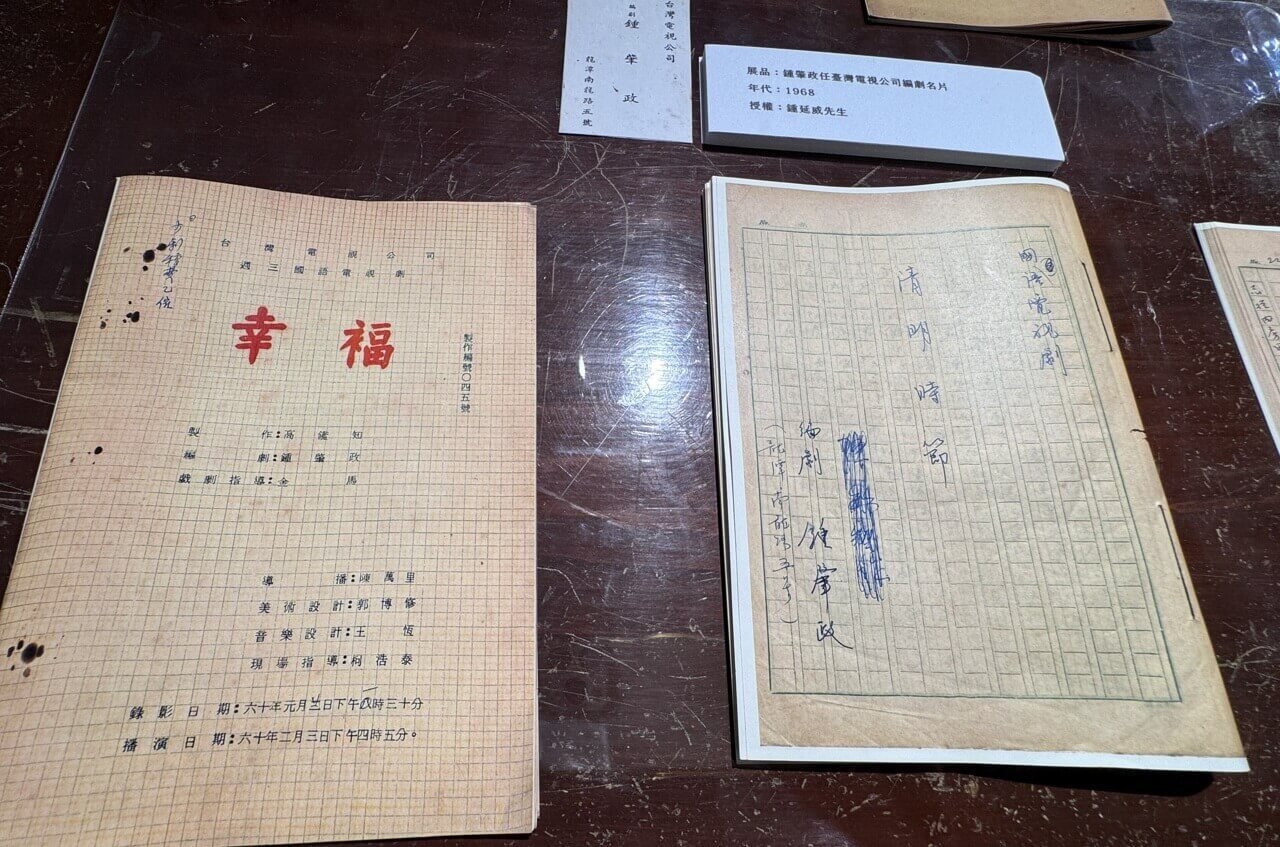 台灣電視公司
編劇 鍾肇政
龍潭南龍路五號
展品：鍾肇政任臺灣電視公司編劇名片
年代：1968
授權：鍾延威先生
台灣電視公司
週三國語電視劇
幸福
製作編號〇四五號
製作：高
編劇：鍾肇政
戲劇指導：金馬
導播：陳萬里
美術設計：郭博修
音樂設計：王恆
現場指導：柯浩泰
錄影日期：六十年元月日下午時三十分
播演日期：六十年二月三日下午四時五分。
國語電視劇
清明時節
編劇 鍾肇政
（龍潭南龍路五號）